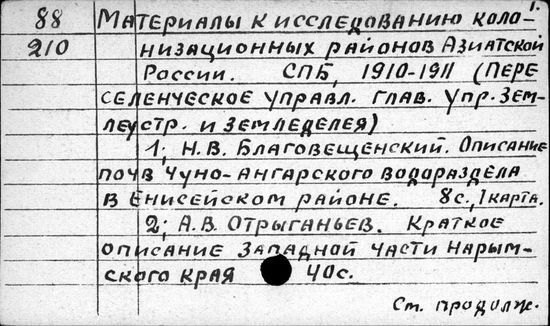 1.
88 Материалы к исследованию коло-
210 низационных районов Азиатской
России. СПБ, 1910-1911 (Пере
селенческое управл. глав. упр. Зем-
леустр. и земледелея)
1; Н.В. Благовещенский. Описание
почв Чуно-Ангарского водораздела
в Енисейском районе. 8с., 1 карта.
2; А.В. Отрыганьев. Краткое
описание Западной части Нарым-
ского края 40с.
См. продолж.